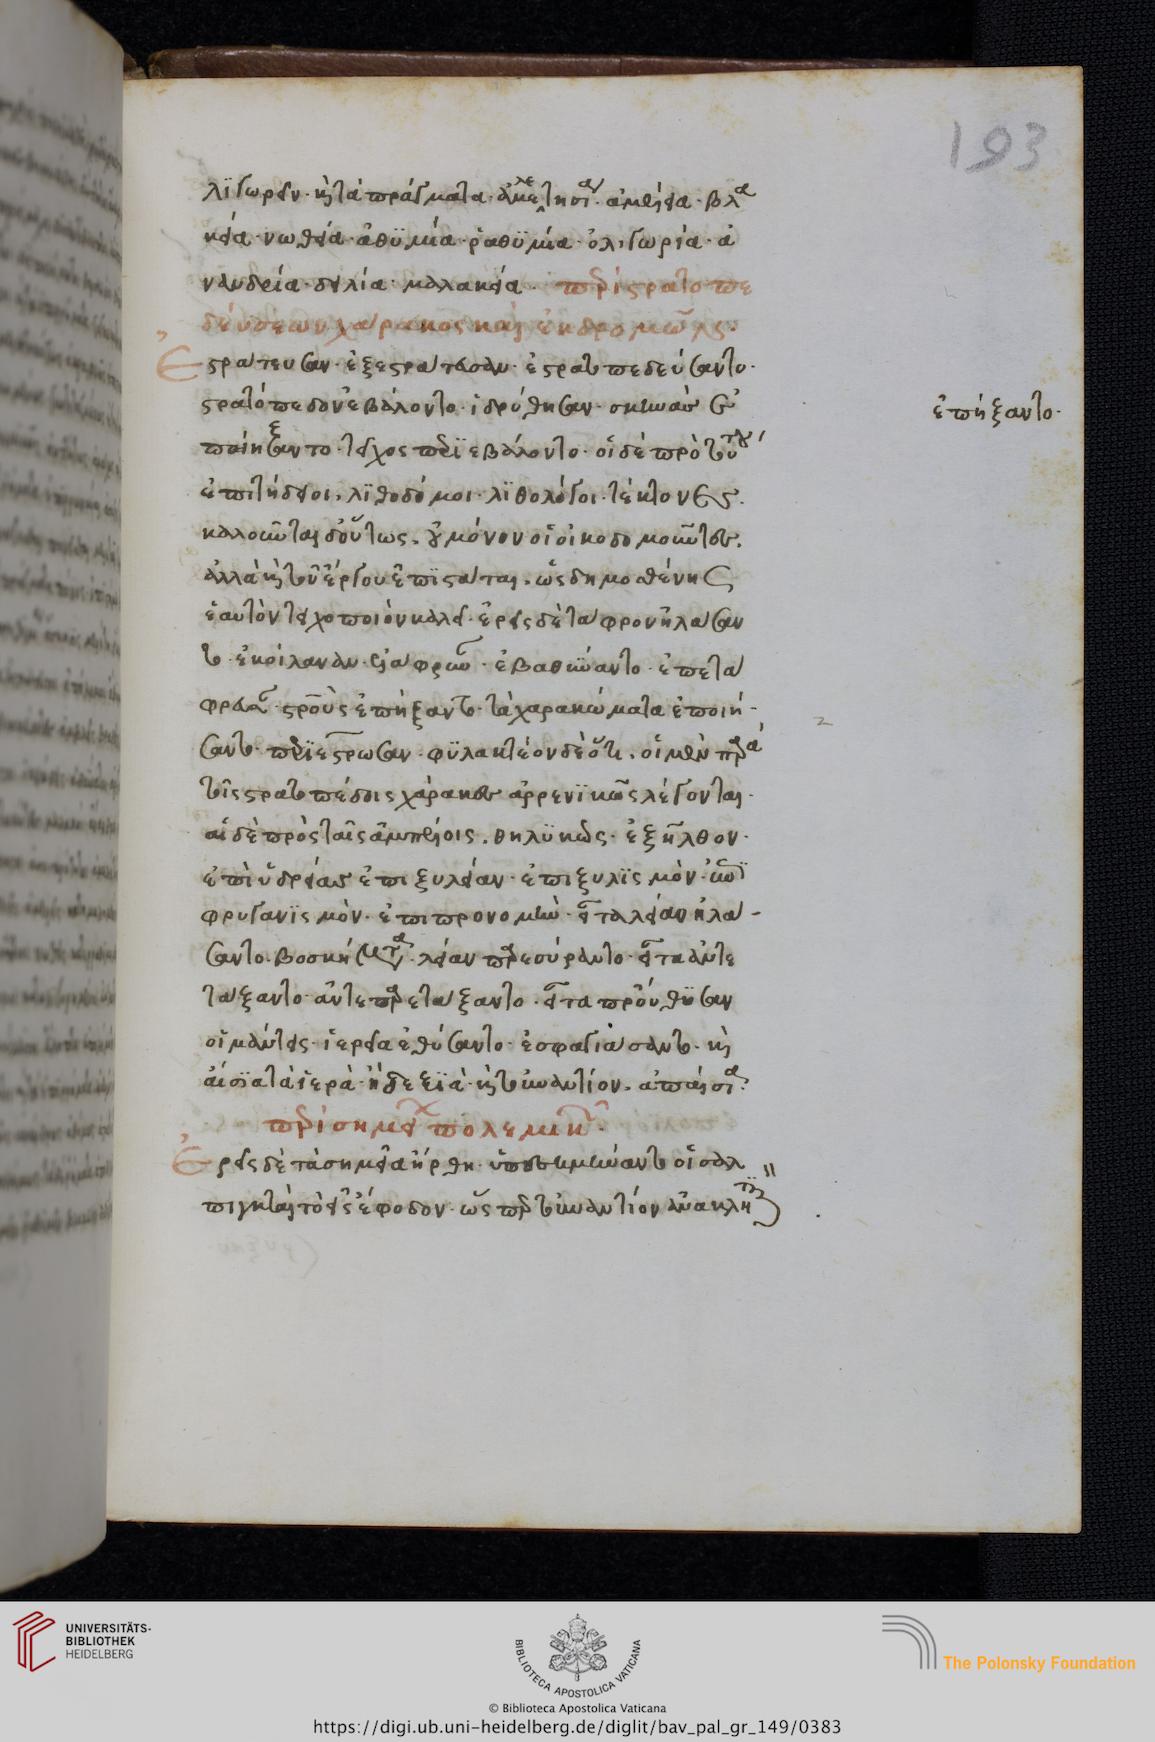 193
λϊγωρεῖν· κὴ τὰ πράγματα· ἀμελετησία· ἀμέλεια· βλα
κεία· νωθεία· ἀθϋμία· ῥαθϋμία· ὀλιγωρία· ἀ
νανδρεία· δειλία· μαλακεία· περὶ στρατοπε
δεύσεων χάρακος καὶ ἐκδρομῶν
Ἐστρατευσαν· ἐξεστράτευσαν· ἐστρατοπεδεύσαντο·
στρατόπεδον ἐβάλοντο· ἱδρύθησαν· σκηνὰς
ἐπήξαντο·
ποιήσαντο· τεῖχος περιεβάλοντο· οἱ δὲ πρὸς τοῦτο
ἐπιτήδειοι, λϊθοδόμοι· λϊθολόγοι· τέκτονες·
καλοῦνται δ' οὕτως, οὐ μόνον οἱ οἰκοδομοῦντες·
ἀλλὰ καὶ τοῦ ἔργου ἐπϊστάται, ὡς δημοσθένης
ἑαυτὸν τειχοποιὸν καλεῖ· ἐρεῖς δὲ τάφρον ἤλασαν
το· ἐκοίλαναν τάφρον· ἐβαθύναντο· ἐπετά
φρευσαν· σταυροὺς ἐπήξαντο· τὰ χαρακώματα ἐποιή-
σαντο· περϊέστρωσαν· φϋλακτέον δὲ ὅτι, οἱ μὲν παρὰ
τοῖς στρατοπέδοις χάρακες ἀρρενϊκῶς λέγονται·
αἱ δὲ πρὸς ταῖς ἀμπέλοις, θηλϋκῶς· ἐξῆλθον·
ἐπὶ ὑδρείαν· ἐπὶ ξυλείαν· ἐπὶ ξυλϊσμὸν· ἐπὶ
φρυγανϊσμὸν· ἐπὶ προνομὴν· εἶτα λείαν ἠλά-
σαντο· βοσκήματα· λείαν περιεσύραντο· εἶτα ἀντε
τάξαντο· ἀντιπαρετάξαντο· εἶτα προὐθϋσαν
οἱ μάντεις· ἱερεῖα ἐθύσαντο· ἐσφαγιάσαντο· κὴ
αἴσϊα τὰ ἱερὰ· ἢ δεξϊὰ· κὴ τοὐναντίον, ἀπαίσια·
περὶ σημείων πολεμικῶν·
Ἐρεῖς δὲ τὰ σημεῖα ἤρθη· ὑπεσημήναντο οἱ σαλ
πιγκταὶ τὸ εἰς ἔφοδον· ὡς πρὸς τοὐναντίον ἀνακλητι
UNIVERSITÄTS-
BIBLIOTHEK
HEIDELBERG
BIBLIOTECA APOSTOLICA VATICANA
The Polonsky Foundation
© Biblioteca Apostolica Vaticana
https://digi.ub.uni-heidelberg.de/diglit/bav_pal_gr_149/0383